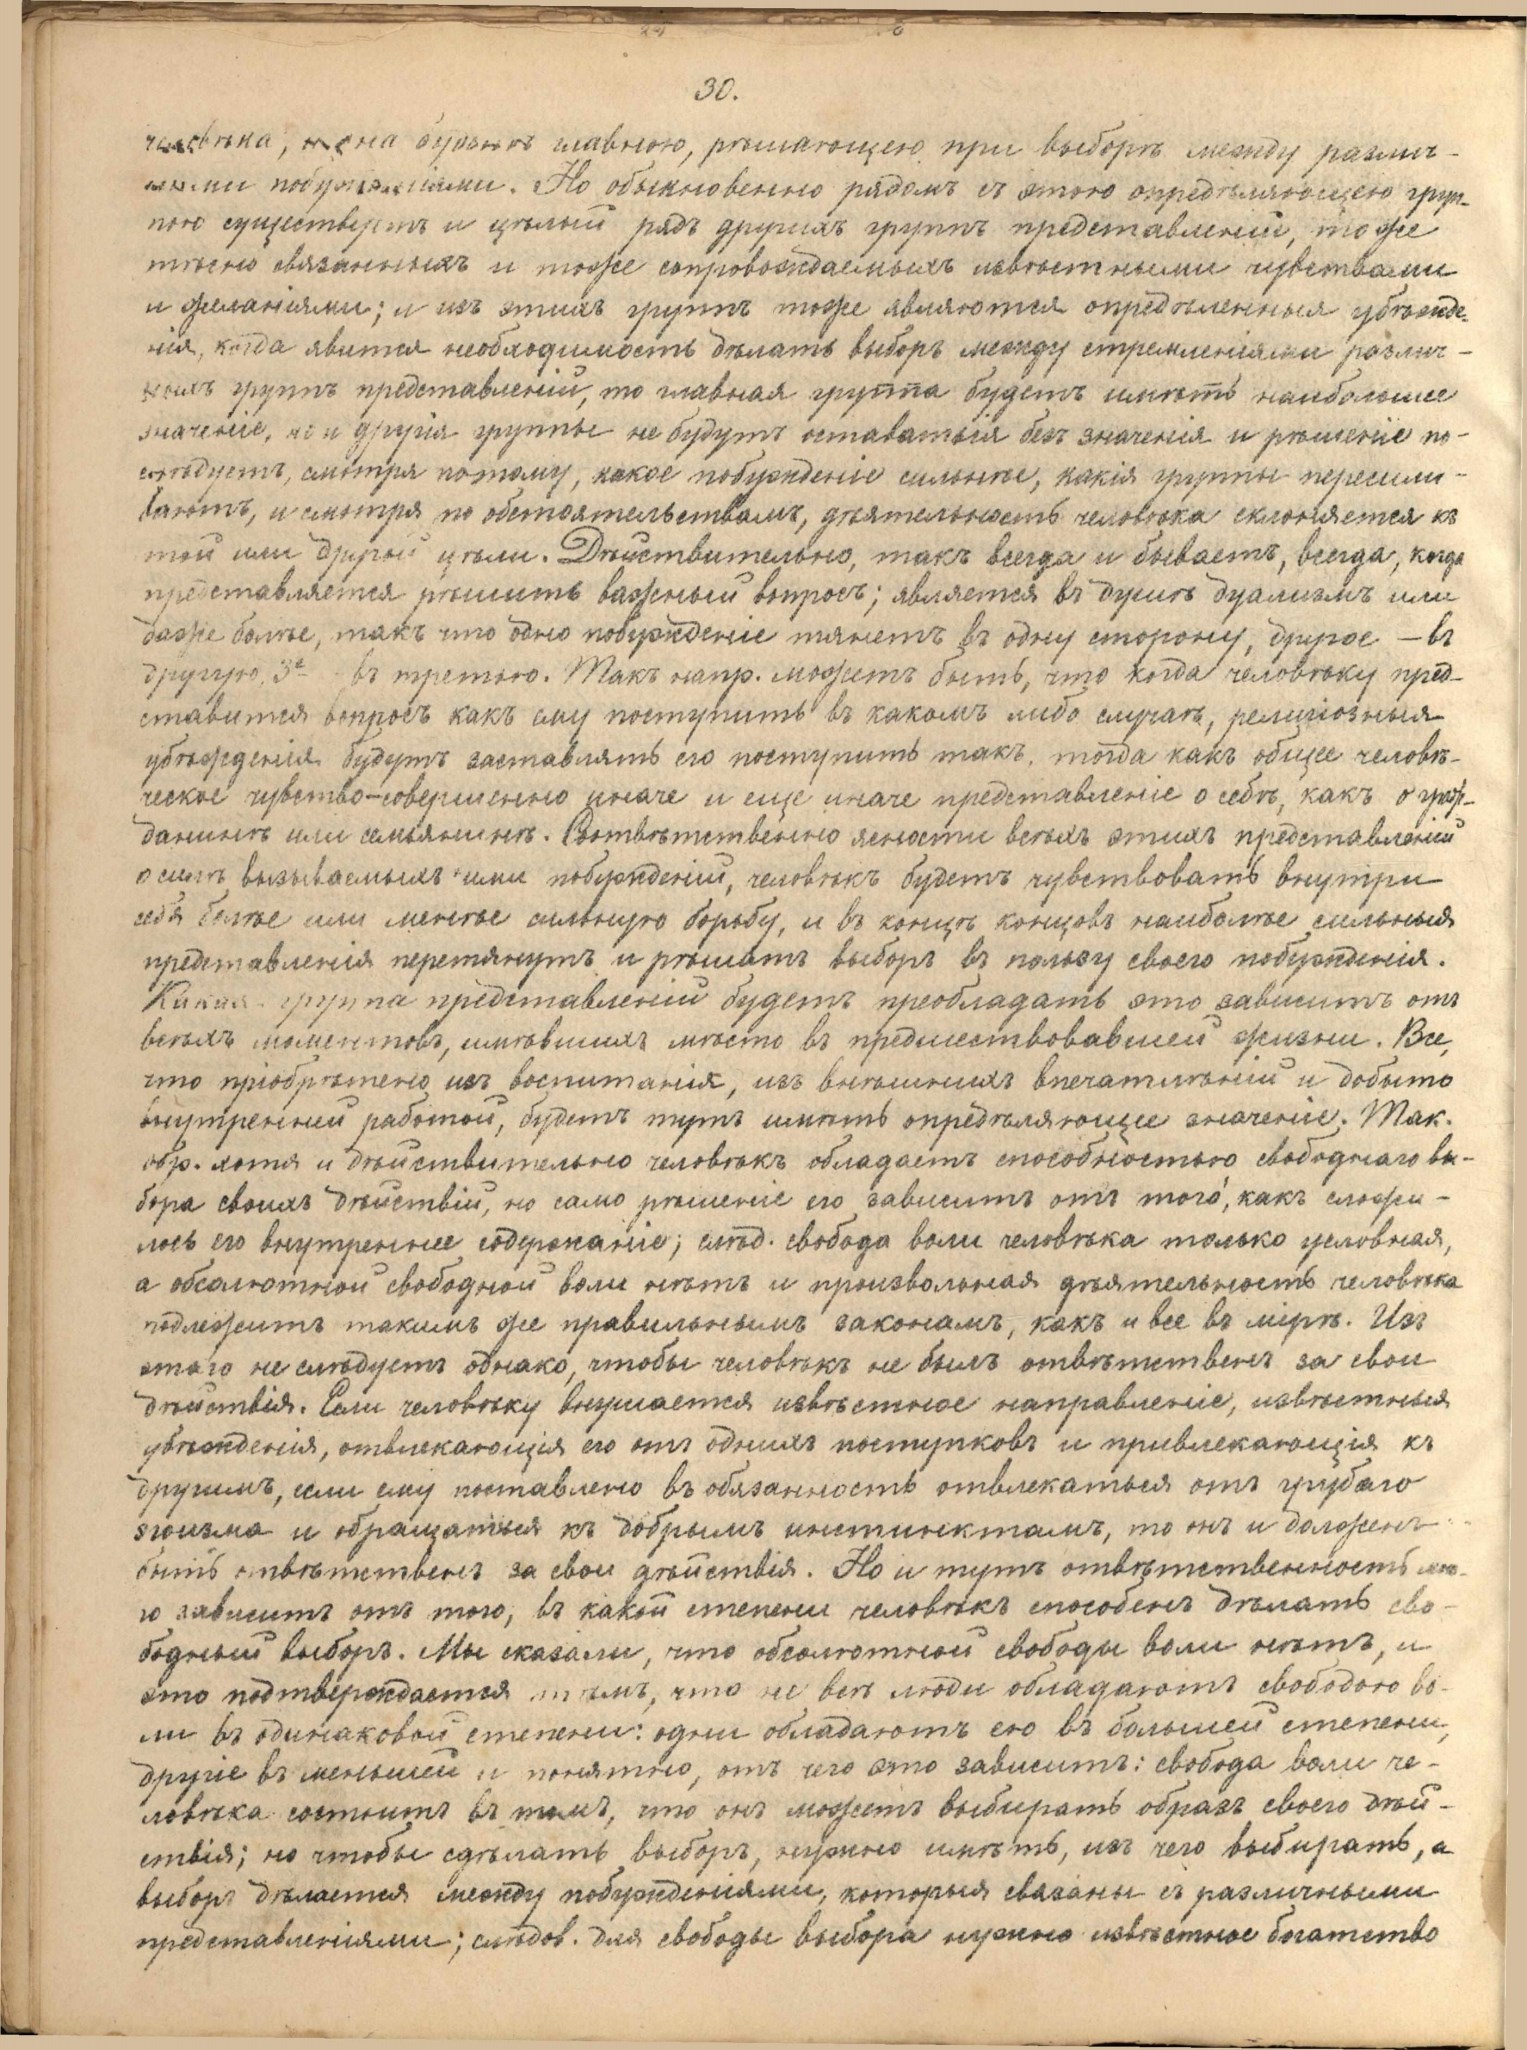 30.
человѣка, и она будетъ главною, рѣшающею при выборѣ между различ-
ными побужденіями. Но обыкновенно рядомъ съ этою опредѣляющею груп-
пою существуетъ и цѣлый рядъ другихъ группъ представленій, тоже
тѣсно связанныхъ и тоже сопровождаемыхъ извѣстными чувствами
и желаніями; и изъ этихъ группъ тоже являются опредѣленныя убѣжде-
нія, когда явится необходимость дѣлать выборъ между стремленіями различ-
ныхъ группъ представленій, то главная группа будетъ имѣть наибольшее
значеніе, но и другія группы не будутъ оставаться безъ значенія и рѣшеніе по-
слѣдуетъ, смотря потому, какое побужденіе сильнѣе, какія группы пересили-
ваютъ, и смотря по обстоятельствамъ, дѣятельность человѣка склоняется къ
той или другой цѣли. Дѣйствительно, такъ всегда и бываетъ, всегда, когда
представляется рѣшить важный вопросъ; является въ душѣ дуализмъ или
даже болѣе, такъ что одно побужденіе тянетъ въ одну сторону, другое — въ
другую, 3е въ третью. Такъ напр. можетъ быть, что когда человѣку пред-
ставится вопросъ какъ ему поступить въ какомъ либо случаѣ, религіозныя
убѣжденія будутъ заставлять его поступить такъ, тогда какъ общее человѣ-
ческое чувство—совершенно иначе и еще иначе представленіе о себѣ, какъ о граж-
данинѣ или семьянинѣ. Соотвѣтственно ясности всѣхъ этихъ представленій
о силѣ вызываемыхъ ими побужденій, человѣкъ будетъ чувствовать внутри
себя болѣе или менѣе сильную борьбу, и въ концѣ концовъ наиболѣе сильныя
представленія перетянутъ и рѣшатъ выборъ въ пользу своего побужденія.
Какая группа представленій будетъ преобладать это зависитъ отъ
всѣхъ моментовъ, имѣвшихъ мѣсто въ предшествовавшей жизни. Все,
что пріобрѣтено изъ воспитанія, изъ внѣшнихъ впечатлѣній и добыто
внутренней работой, будетъ тутъ имѣть опредѣляющее значеніе. Так.
обр. хотя и дѣйствительно человѣкъ обладаетъ способностью свободнаго вы-
бора своихъ дѣйствій, но само рѣшеніе его зависитъ отъ того, какъ сложи-
лось его внутреннее содержаніе; слѣд. свобода воли человѣка только условная,
а абсолютной свободной воли нѣтъ и произвольная дѣятельность человѣка
подлежитъ такимъ же правильнымъ законамъ, какъ и все въ мірѣ. Изъ
этого не слѣдуетъ однако, чтобы человѣкъ не былъ отвѣтственъ за свои
дѣйствія. Если человѣку внушается извѣстное направленіе, извѣстныя
убѣжденія, отвлекающія его отъ однихъ поступковъ и привлекающія къ
другимъ, если ему поставлено въ обязанность отвлекаться отъ грубаго
эгоизма и обращаться къ добрымъ инстинктамъ, то онъ и долженъ
быть отвѣтственъ за свои дѣйствія. Но и тутъ отвѣтственность мно-
го зависитъ отъ того, въ какой степени человѣкъ способенъ дѣлать сво-
бодный выборъ. Мы сказали, что абсолютной свободы воли нѣтъ, и
это подтверждается тѣмъ, что не всѣ люди обладаютъ свободою во-
ли въ одинаковой степени: одни обладаютъ ею въ большей степени,
другіе въ меньшей и понятно, отъ чего это зависитъ: свобода воли че-
ловѣка состоитъ въ томъ, что онъ можетъ выбирать образъ своего дѣй-
ствія; но чтобы сдѣлать выборъ, нужно имѣть, изъ чего выбирать, а
выборъ дѣлается между побужденіями, которыя связаны съ различными
представленіями; слѣдов. для свободы выбора нужно извѣстное богатство